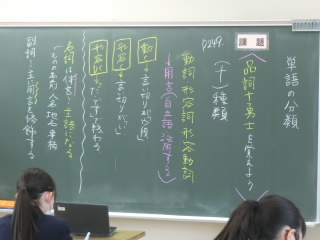 単語の分類
課題
P249.
品詞十勇士を覚えよう
(十)種類
動詞 形容詞 形容動詞
→用言(自立語 活用する)
動 → 言い切りがウ段
形容 → 言い切りが「い」
形容動 → 「だ」「です」で終わる
名詞は体言 主語になる
ものの名前 人名 地名 単語
副詞…主に用言を修飾する